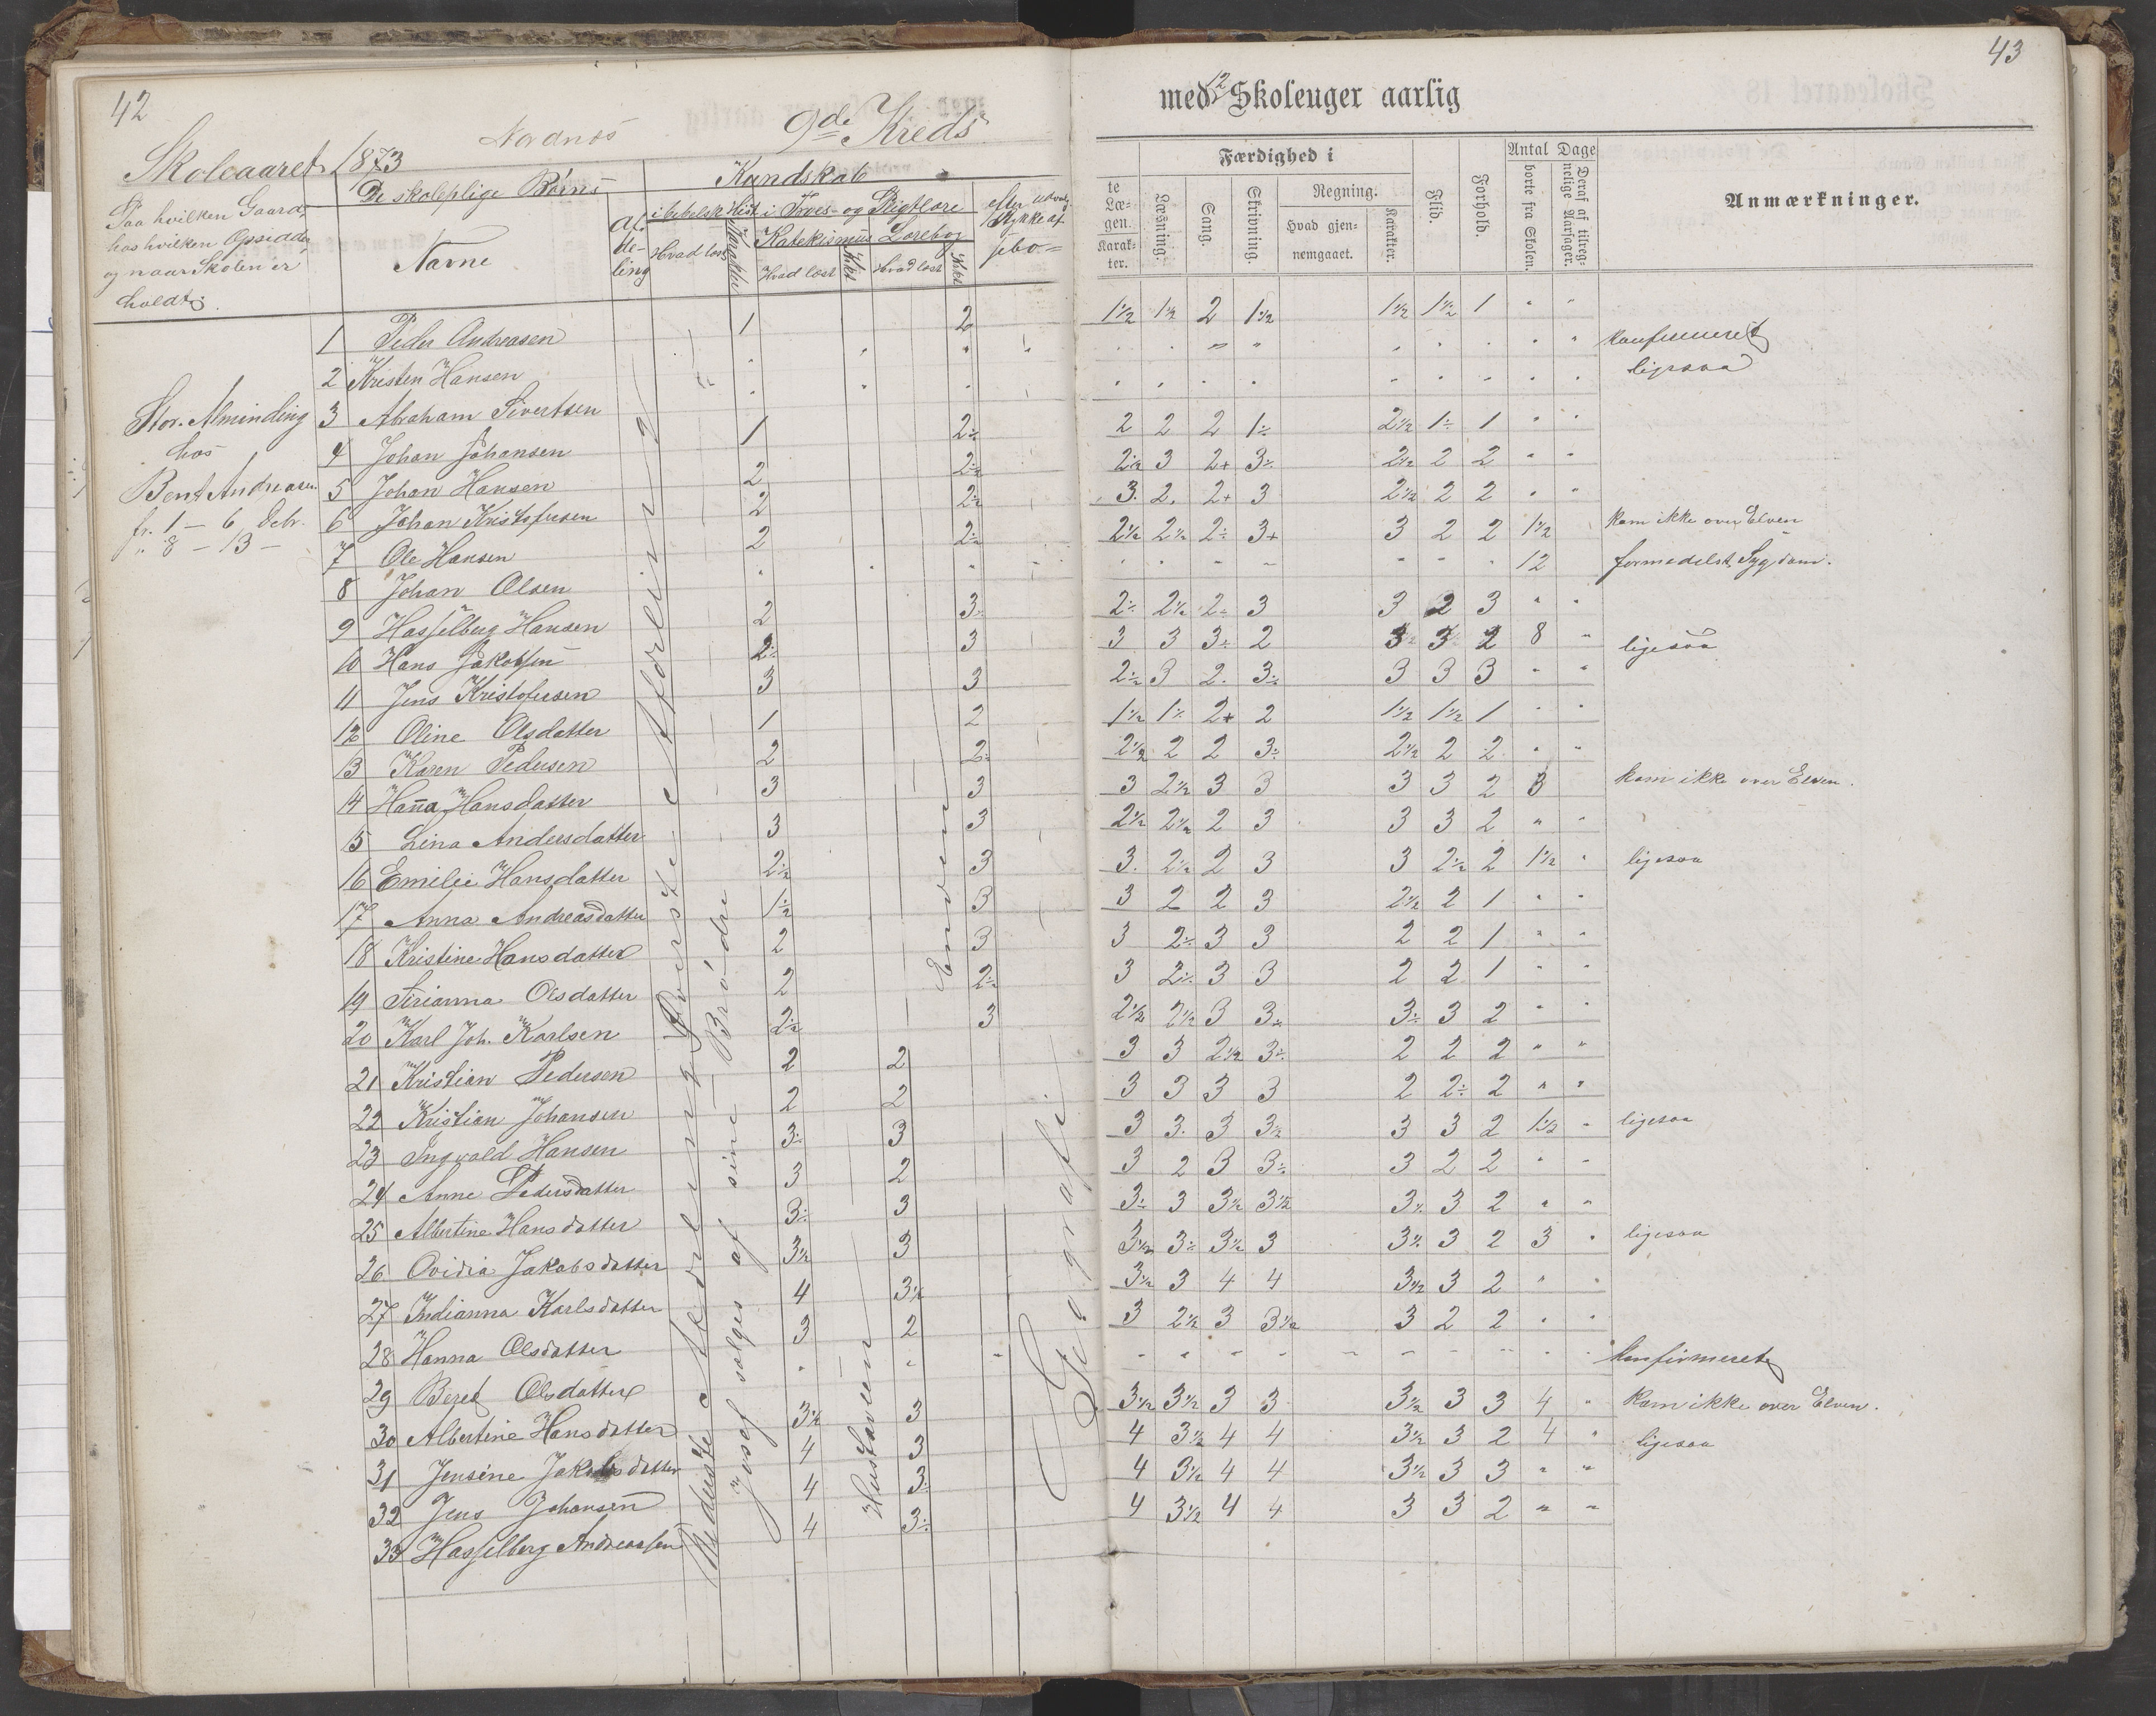 42
Nordnes
9de Kreds
Skoleaaret 1873
Paa hvilken Gaard,
hos hvilken Opsidder
og naar Skolen er
holdt.
De skoleplige Børns
Navne
Af-
de-
ling
Kundskab
i bibelsk Hist.
Hvad læst
Karakter
i Troes- og Pligtlære
Katekismus
Lærebog
Hvad læst
Hvad læst
Stor. Alminding
hos
Bent Andreasen
fr. 1 - 6 Debr.
" 8 - 13 -
1 Peder Andreasen 1 2
2 Kristen Hansen
3 Abraham Sivertsen
4 Johan Johansen 1 2÷
5 Johan Hansen 2 2½
6 Johan Kristofersen 2 2½
7 Ole Hansen 2 2½
8 Johan Olsen
9 Hasselberg Hansen 2 3÷
10 Hans Jakobsen 2½ 3
11 Jens Kristofersen 3 3
12 Oline Olsdatter 1 2
13 Karen Pedersen 2 2÷
14 Hanna Hansdatter 3 3
15 Lina Andersdatter 3 3
16 Emilie Hansdatter 2½ 3
17 Anna Andreasdatter 1½ 3
18 Kristine Hansdatter 2 3
19 Sirianna Olsdatter 2 2½
20 Karl Joh. Karlsen 2½ 3
21 Kristian Pedersen 2 2
22 Kristian Johansen 2 2
23 Ingvald Hansen 3÷ 3
24 Anne Pedersdatter 3 2
25 Albertine Hansdatter 3÷ 3
26 Ovidia Jakobsdatter 3½ 3
27 Indianna Karlsdatter 4 3½
28 Hanna Olsdatter 3 2
29 Beret Olsdatter
30 Albertine Hansdatter 3½ 3
31 Jensine Jakobsdatter 4 3
32 Jens Johansen 4 3÷
33 Hasselberg Andreassen 4 3÷
Øverste Afdeling
Nederste Afdeling
Josef sælges af sine Brødre
Hustavlen
Geografi
43
med 12 Skoleuger aarlig
te
Læ-
gen.
Karak-
ter.
Færdighed i
Læsning.
Sang.
Skrivning.
Regning.
Hvad gjen-
nemgaaet.
Karakter.
Flid.
Forhold.
Antal Dage
borte fra Skolen.
Deraf af tilreg-
nelige Aarsager.
Anmærkninger.
1½ 1½ 2 1½ 1½ 1½ 1
konfirmeret
ligesaa
2 2 2 1÷ 2½ 1÷ 1
2½ 3 2+ 3÷ 2½ 2 2
3 2 2+ 3 2½ 2 2
2½ 2½ 2÷ 3+ 3 2 2 1½ kom ikke over Elven
12 formedelst Sygdom.
2÷ 2½ 2÷ 3 3 2 3
3 3 3÷ 2 3 3 2 8 ligesaa
2½ 3 2 3÷ 3 3 3
1½ 1½ 2+ 2 1½ 1½ 1
2½ 2 2 3÷ 2½ 2 2
3 2½ 3 3 3 3 2 3 kom ikke over Elven.
2½ 2½ 2 3 3 3 2
3 2½ 2 3 3 2½ 2 1½ ligesaa
3 2 2 3 2½ 2 1
3 2÷ 3 3 2 2 1
3 2÷ 3 3 2 2 1
2½ 2½ 3 3÷ 3÷ 3 2
3 3 2½ 3÷ 2 2 2
3 3 3 3 2 2÷ 2
3 3 3 3½ 3 3 2 1½ ligesaa
3 2 3 3÷ 3 2 2
3÷ 3 3½ 3½ 3½ 3 2
3½ 3÷ 3½ 3 3½ 3 2 3 ligesaa
3½ 3 4 4 3½ 3 2
3 2½ 3 3½ 3 2 2
konfirmeret
3½ 3½ 3 3 3½ 3 3 4 kom ikke over Elven.
4 3½ 4 4 3½ 3 2 4 ligesaa
4 3½ 4 4 3½ 3 3
4 3½ 4 4 3 3 2